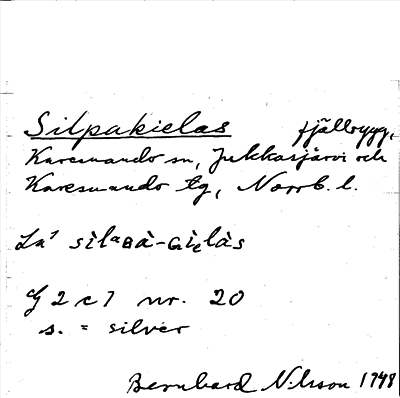 Silpakielas fjällrygg,
Karesuando sn, Jukkasjärvi och
Karesuando tg, Norrb. l.
La¹ sìlᵃʙà-ɢìₑlàs
G 2 c 7 nr. 20
s. = silver
Bernhard Nilsson 1948